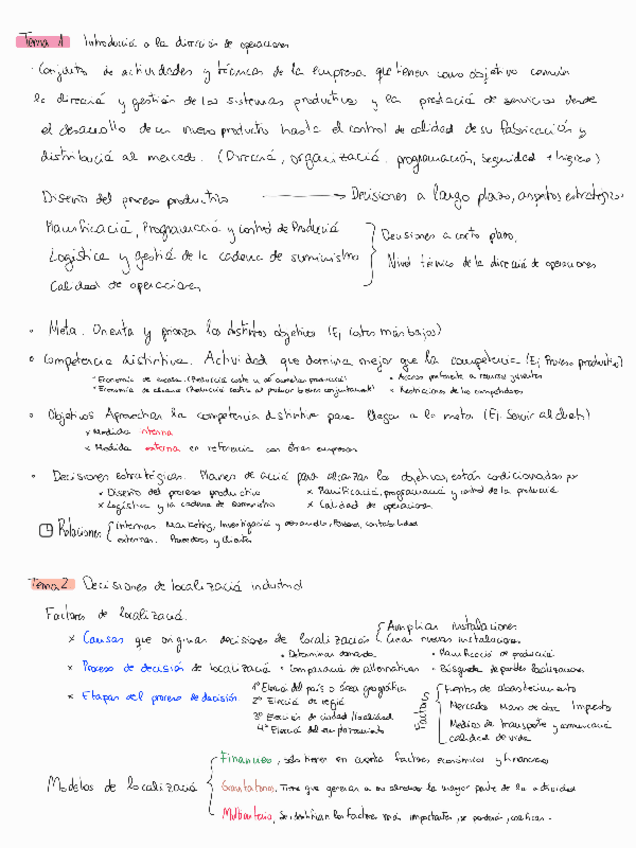 Tema 1 Introducció a la dirección de operaciones
· Conjunto de actividades y técnicas de la empresa que tienen como objetivo común
la direcció y gestión de los sistemas productivos y la prestació de servicios desde
el desarrollo de un nuevo producto hasta el control de calidad de su fabricación y
distribució al mercado. (Direcció, organizació, programación, seguridad + higiene)
Diseño del proceso productivo → Decisiones a largo plazo, aspectos estratégicos
Planificació, Programació y control de Producció
Logística y gestió de la cadena de suministro
Calidad de operaciones
Decisiones a corto plazo,
Nivel técnico de la direcció de operaciones
• Meta. Orienta y prioriza los distintos objetivos (Ej costes más bajos)
• Competencia distintiva. Actividad que domina mejor que la competencia (Ej Proceso productivo)
* Economía de escala (Producció coste u. al aumentar producció) * Acceso preferente a recursos
* Economía de alcance (Producció al producir bienes conjuntamente) * Restricciones de los competidores
• Objetivos Aprovechan la competencia distintiva para llegar a la meta (Ej. Servir al cliente)
x Medida interna
x Medida externa en referencia con otras empresas
• Decisiones estratégicas. Planes de acció para alcanzar los objetivos, están condicionadas por
x Diseño del proceso productivo x Planificació, programació y control de la producció
x Logística y la cadena de suministro x Calidad de operaciones
Relaciones
internas Marketing, Investigació y desarrollo, contabilidad
externas. Proveedores y Clientes
Tema 2 Decisiones de localizació industrial
Factores de localizació.
x Causas que originan decisiones de localización
Ampliar instalaciones
Crear nuevas instalaciones
x Proceso de decisión de localizació
• Determinar demanda • Planificació de producció
• Comparació de alternativas • Búsqueda de localizaciones
x Etapas del proceso de decisión
1º Elecció del país o área geográfica
2º Elecció de regió
3º Elección de ciudad/localidad
4º Elecció del emplazamiento
Factores
Fuentes de abastecimiento
Mercados Mano de obra Impuestos
Medios de transporte y comunicació
calidad de vida
Modelos de localizació
Financiero, solo tienen en cuenta factores económicos y financieros
Gravitatorio. Tiene que generar a su alrededor la mayor parte de la actividad
Multicriterio, Se identifican los factores más importantes, se ponderan, califican.